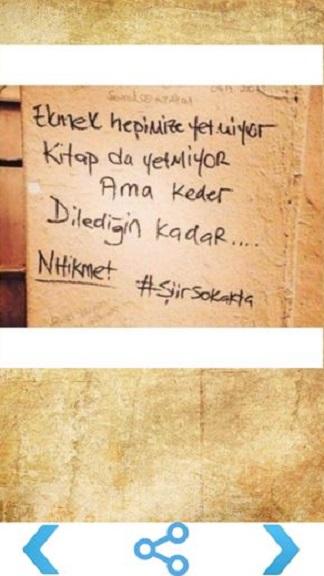 Ekmek hepimize yetmiyor
Kitap da yetmiyor
Ama keder
Dilediğin kadar....
N Hikmet
#şiirsokakta